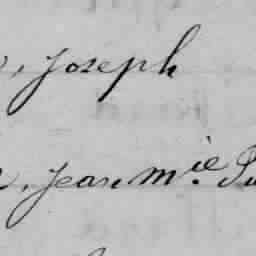 , Joseph
, Jean m.ie